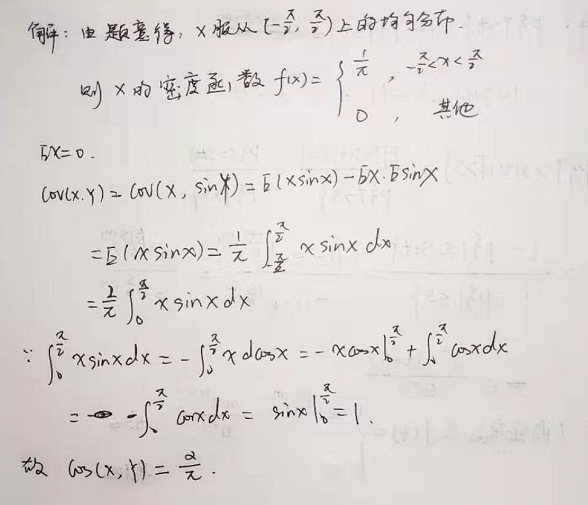 解：由题意得，X服从(-π/2, π/2)上的均匀分布.
则X的密度函数 f(x)= { 1/π , -π/2<x<π/2
0 , 其他
EX=0.
Cov(X,Y)=Cov(X, sinX)=E(XsinX)-EX·EsinX
=E(XsinX)=1/π ∫_{-π/2}^{π/2} x sinx dx
=2/π ∫_0^{π/2} x sinx dx
∵ ∫_0^{π/2} x sinx dx = -∫_0^{π/2} x dcosx = -xcosx|_0^{π/2} + ∫_0^{π/2} cosx dx
= -∫_0^{π/2} cosx dx = sinx|_0^{π/2} = 1.
故 Cos(X,Y)=2/π.